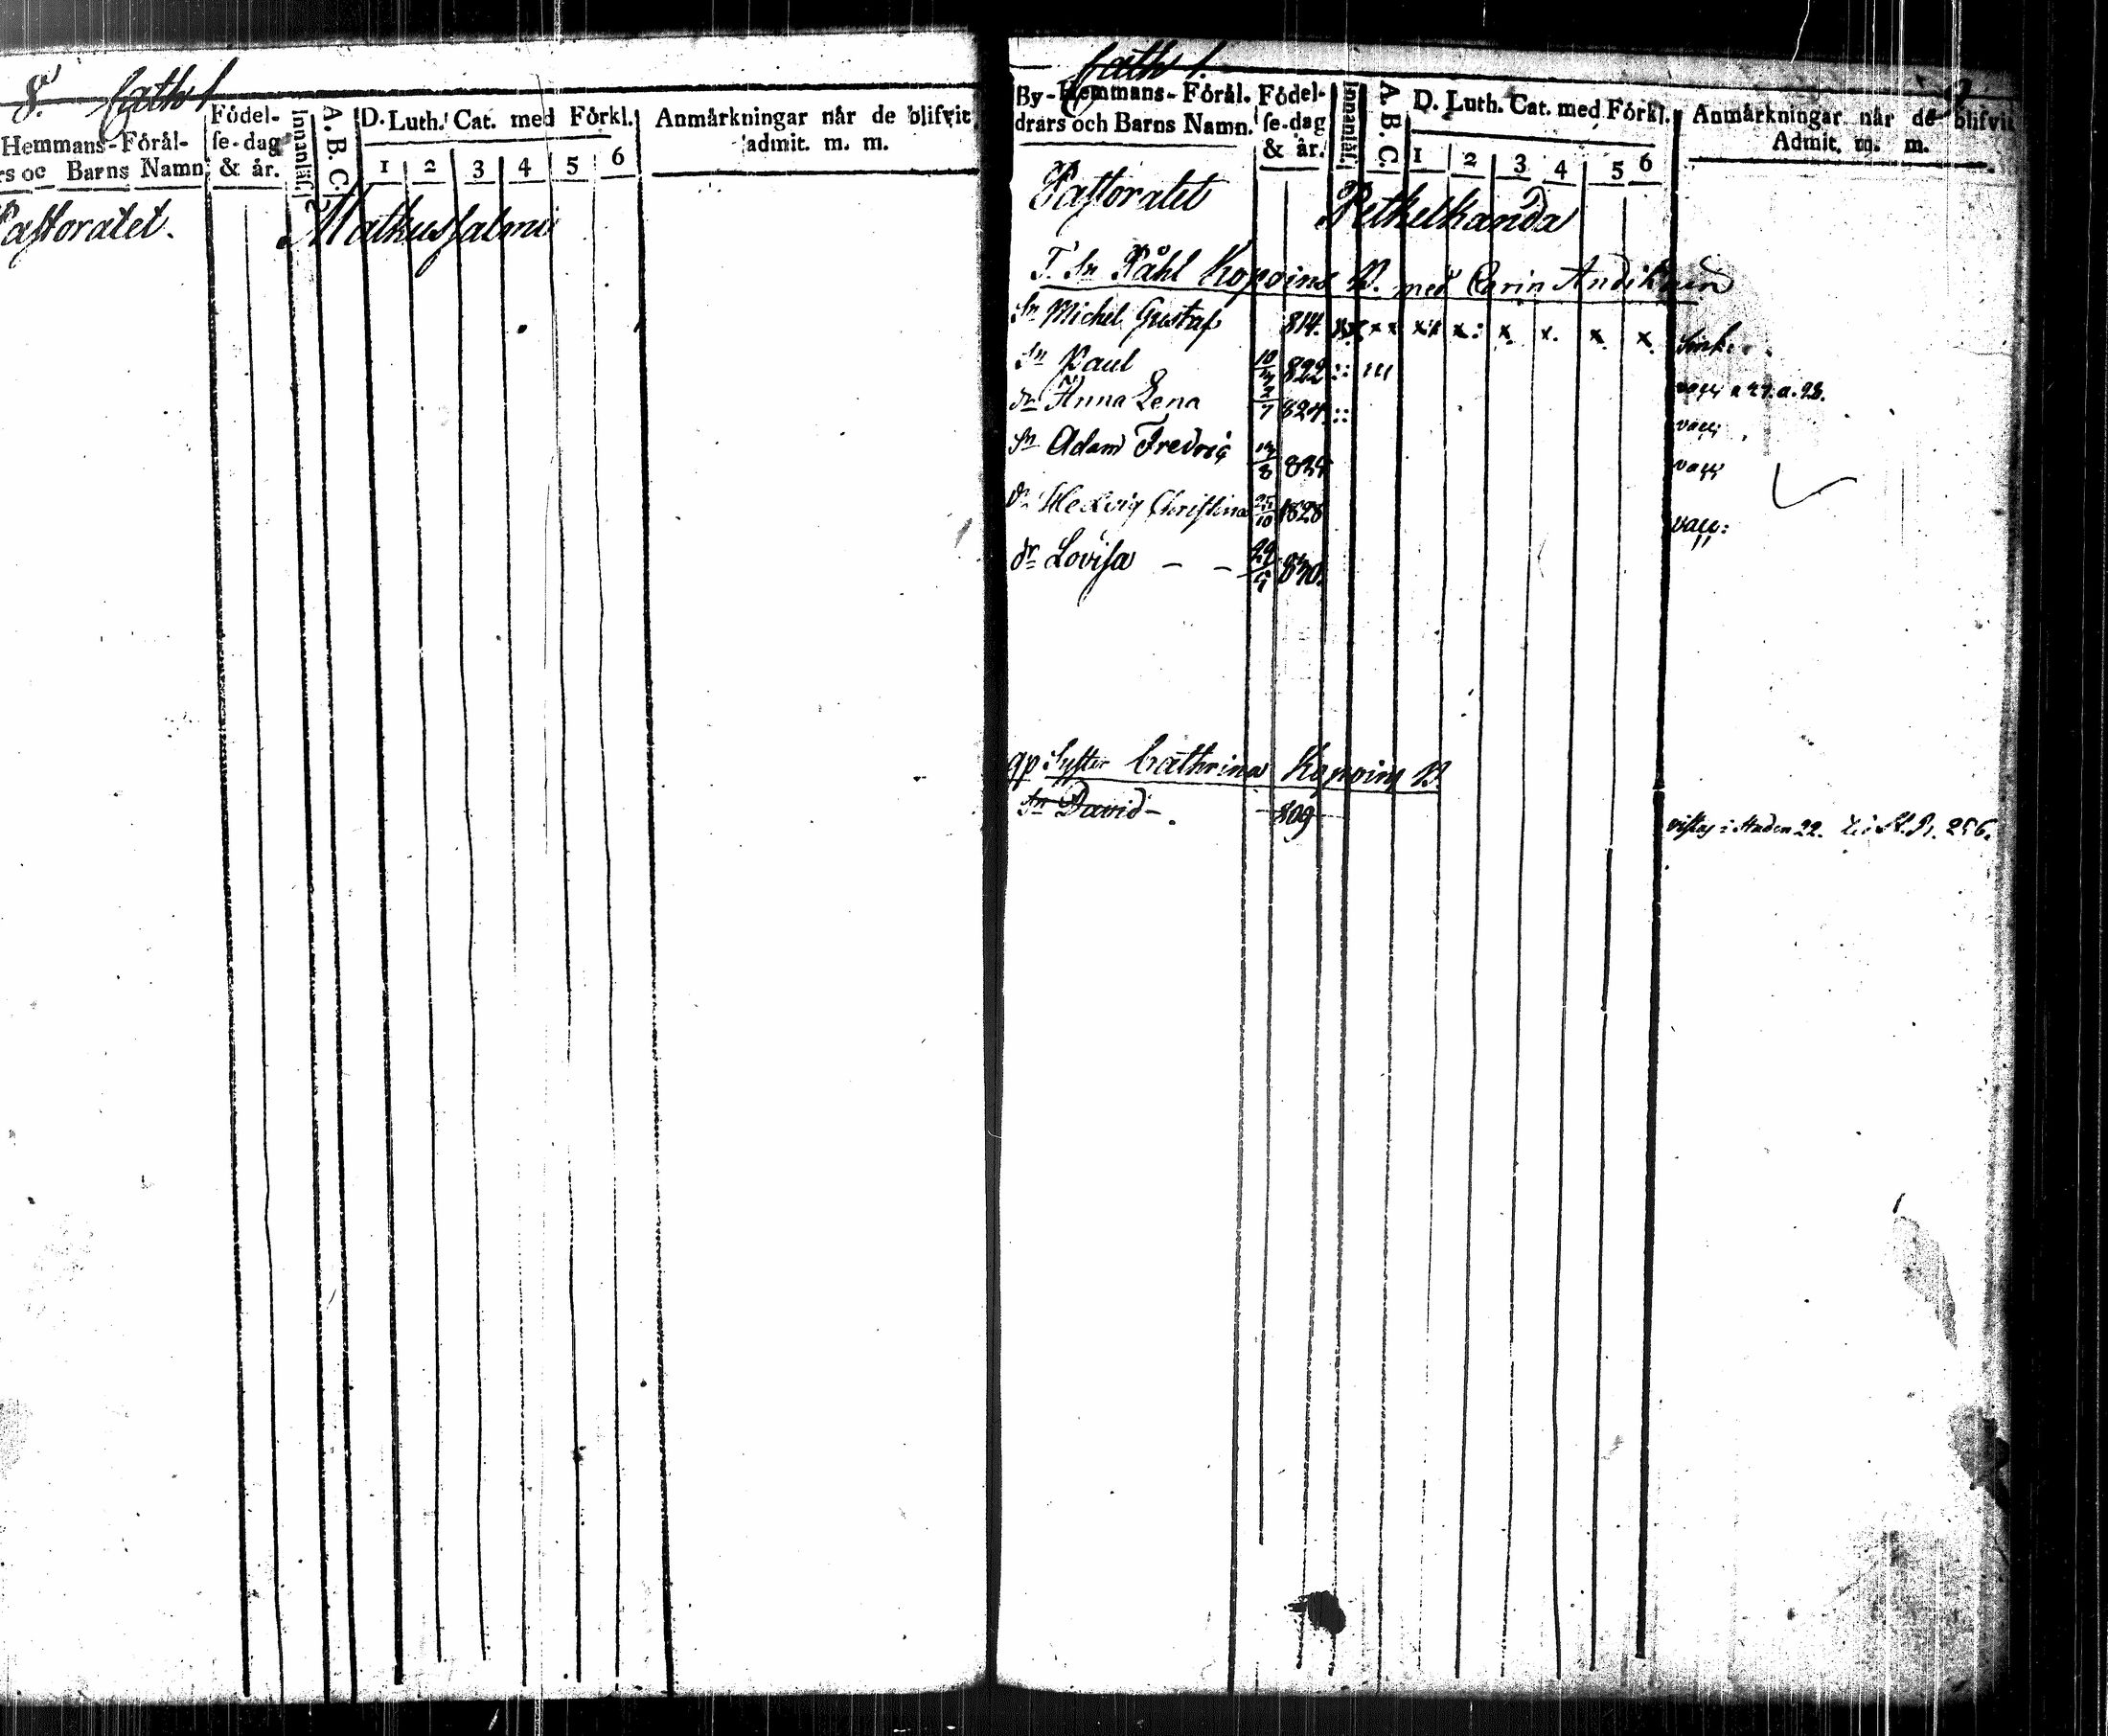 8. Cath 1
Hemmans-Föräl-
rs oc Barns Namn.
Födel-
se-dag
& år.
Innanläs.
A. B. C.
D. Luth. Cat. med Förkl.
1 2 3 4 5 6
Anmärkningar når de blifvit
admit. m. m.
Pastoratet. Mathussalmi
Cath 1. 9
By-Hemmans-Föräl.
drars och Barns Namn.
Födel-
se-dag
& år.
Innanläs.
A. B. C.
D. Luth. Cat. med Förkl.
1 2 3 4 5 6
Anmärkningar når de blifvit
Admit. m. m.
Pastoratet Pethelkanda
T. Sn Påhl Kopoins B. med Carin
Sn Michel Gustaf 814. x x x x x x
Sn Paul 822
dr Anna Lena 824
Sn Adam Fredric 8
dr Hedvig Christina 25/10 1828
dr Lovisa - - 29 830.
Syster Cathrina Kopoins B.
Sn David - 809 vistas i Staden 22. 256.